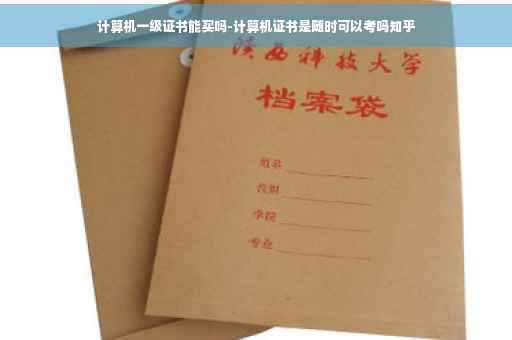 计算机一级证书能买吗-计算机证书是随时可以考吗知乎
陕西科技大学
档案袋
姓名
学院
专业